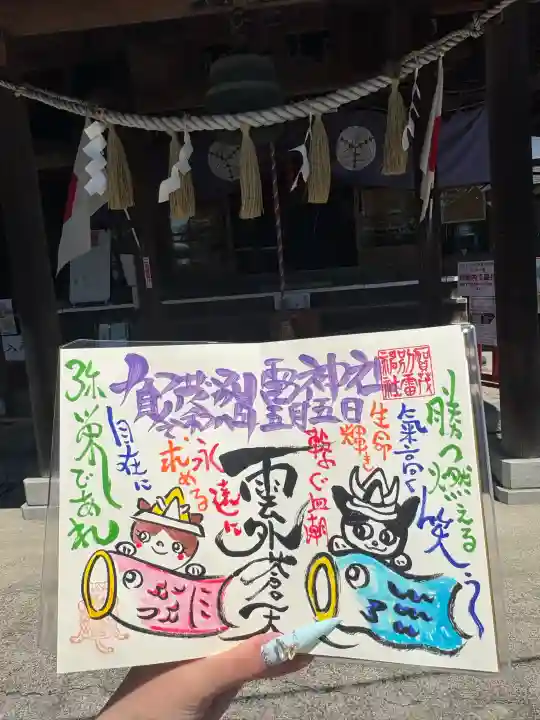 賀茂別雷神社
五月五日
勝つ燃える
笑う
氣高く
生命
輝き
繋ぐ血潮
雲外蒼天
永遠に
求める
自在に
弥栄であれ
賀茂
別雷
神社